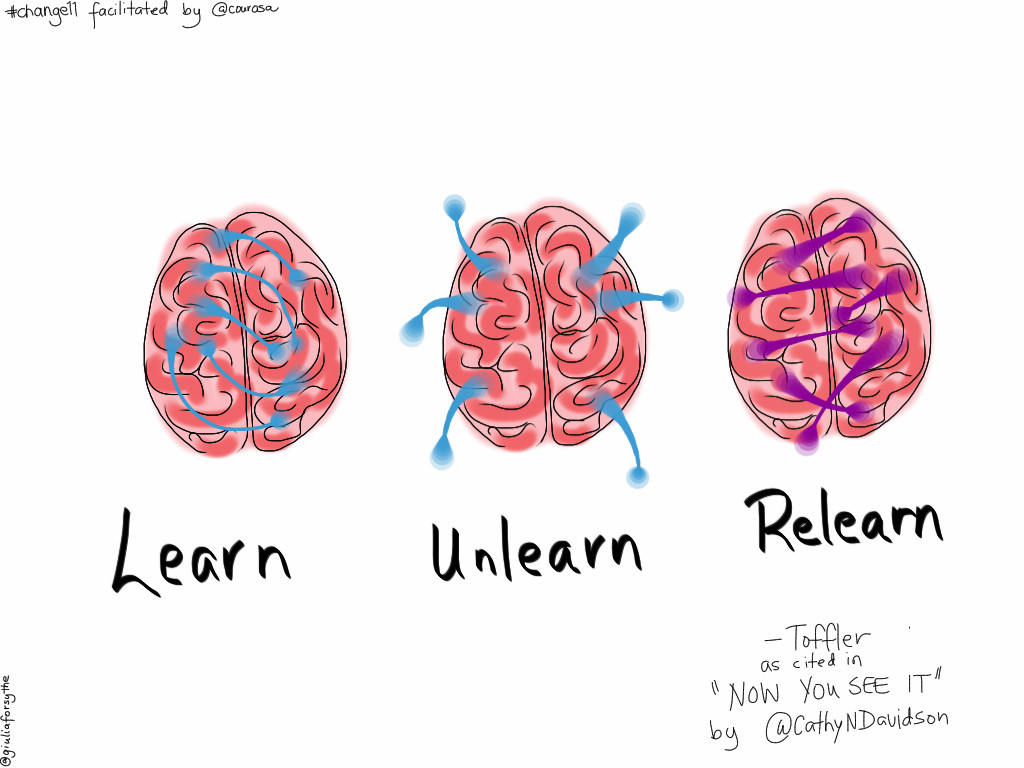 #change11 facilitated by @courosa
Learn
Unlearn
Relearn
- Toffler
as cited in
"NOW YOU SEE IT"
by @CathyNDavidson
@giuliaforsythe